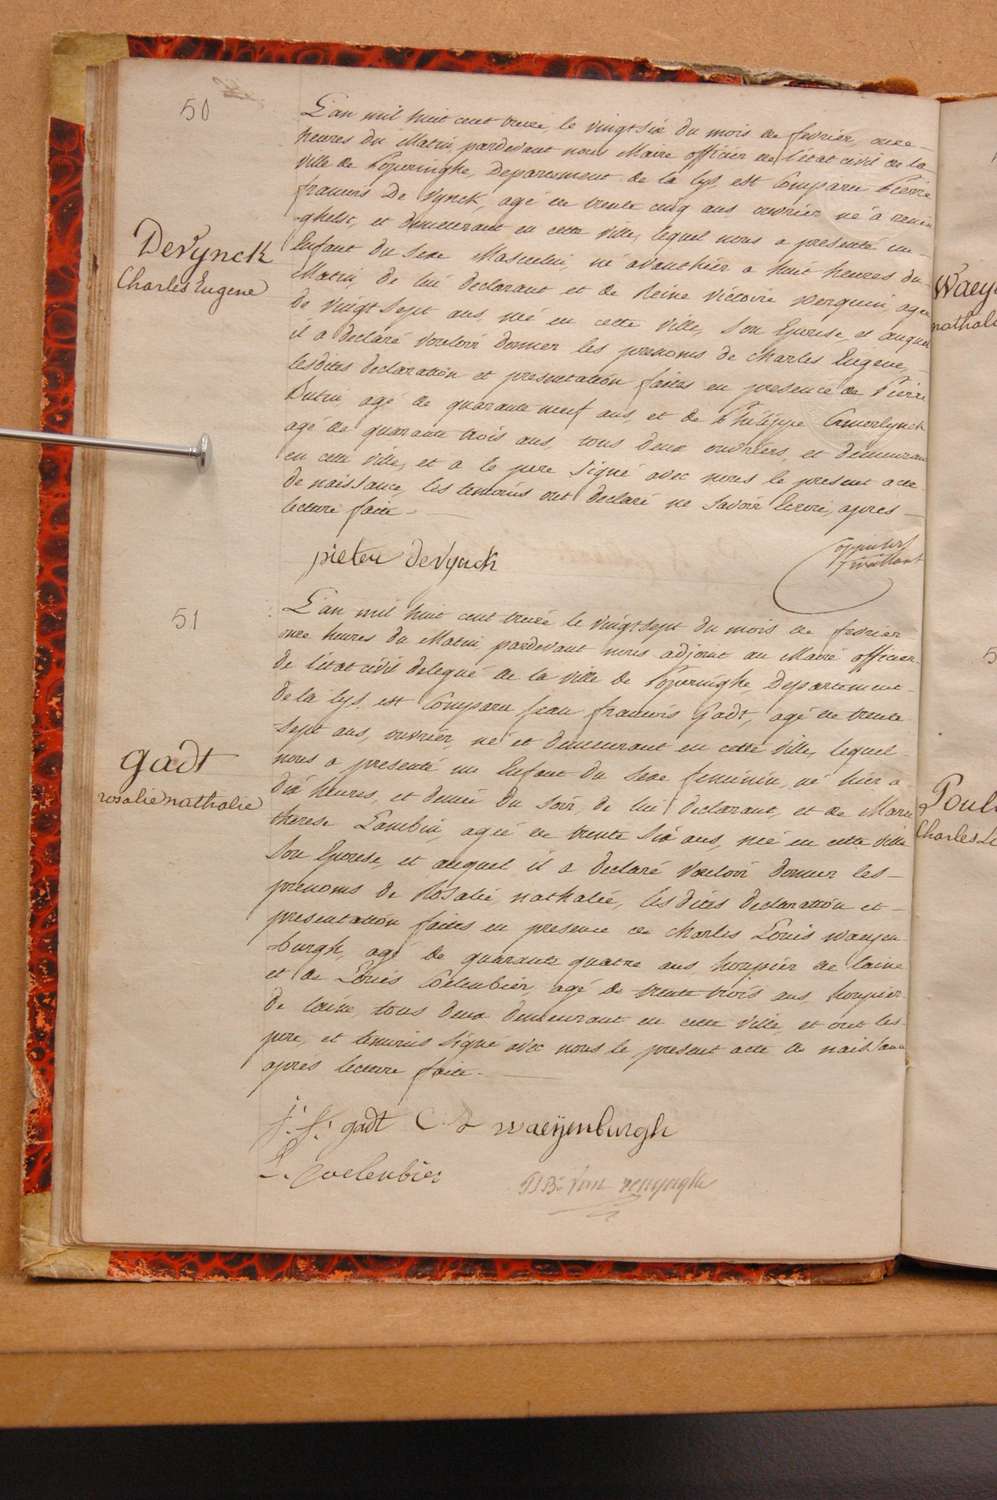 50
DeVynck
Charles Eugene
L'an mil huit cent treize le vingt six du mois de fevrier, onze
heures du Matin, pardevant nous Maire officier de l'etat civil de la
ville de Poperinghe, Departement de la Lys, est Comparu Pierre
francois De Vynck, agé de trente cinq ans ouvrier né à renin
ghelst, et demeurant en cette ville, lequel nous a presenté un
Enfant du Sexe Masculin, né avanthier a huit heures du
Matin, de lui declarant et de Reine Victoire Werquin, agée
de vingt Sept ans, née en cette ville, Son Epouse, et auquel
il a declaré vouloir donner les prenoms de Charles Eugene,
lesdites declaration et presentation faites en presence de Pierre
agé de quarante neuf ans, et de Philippe
agé de quarante trois ans, tous deux ouvriers, et demeurant
en cette ville, et a le pere Signé avec nous le present acte
de naissance, les temoins ont declaré ne Savoir Ecrire, apres
lecture faite.
pieter deVynck
51
gadt
rosalie nathalie
L'an mil huit cent treize le vingt Sept du mois de fevrier
onze heures du Matin pardevant nous adjoint au Maire officier
de l'etat civil delegué de la ville de Poperinghe Departement
de la Lys, est Comparu Jean francois Gadt, agé de trente
Sept ans, ouvrier, né et demeurant en cette ville, lequel
nous a presenté un Enfant du Sexe feminin, né hier a
dix heures, et demie du Soir, de lui declarant, et de Marie
therese Lambin, agée de trente Six ans, née en cette ville
Son Epouse, et auquel il a declaré vouloir donner les
prenoms de Rosalie, nathalie, lesdites declaration et
presentation faites en presence de Charles Louis waeyen
burgh, agé de quarante quatre ans houpier de laine
et de Louis Coelenbier, agé de trente trois ans houpier
de laine, tous deux demeurant en cette ville et ont les
pere, et temoins Signé avec nous le present acte de naissance
apres lecture faite.
j. f. gadt
waeÿenburgh
L. Coelenbier
Waey
nathali
5
Poul
Charles L